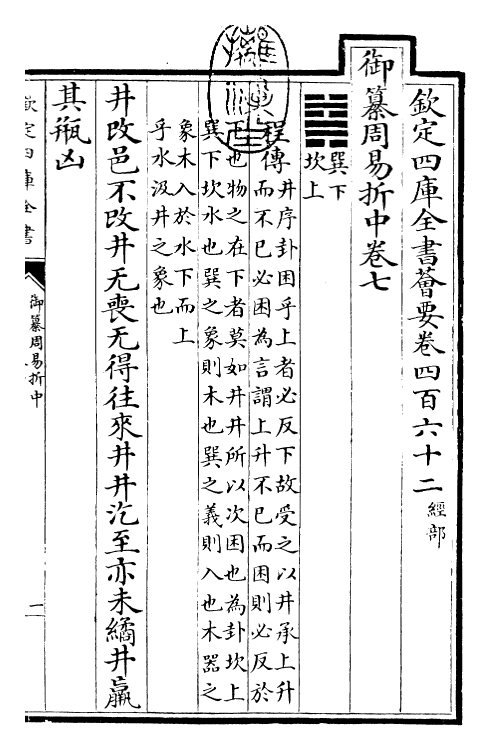 欽定四庫全書薈要卷四百六十二 經部
御纂周易折中卷七
巽下
坎上
程傳 井序卦困乎上者必反下故受之以井承上升
而不已必困為言謂上升不已而困則必反於
下也物之在下者莫如井井所以次困也為卦坎上
巽下坎水也巽之象則木也巽之義則入也木器之
象木入於水下而上
乎水汲井之象也
井改邑不改井无喪无得往來井井汔至亦未繘井羸
其瓶凶
欽定四庫全書
御纂周易折中
一